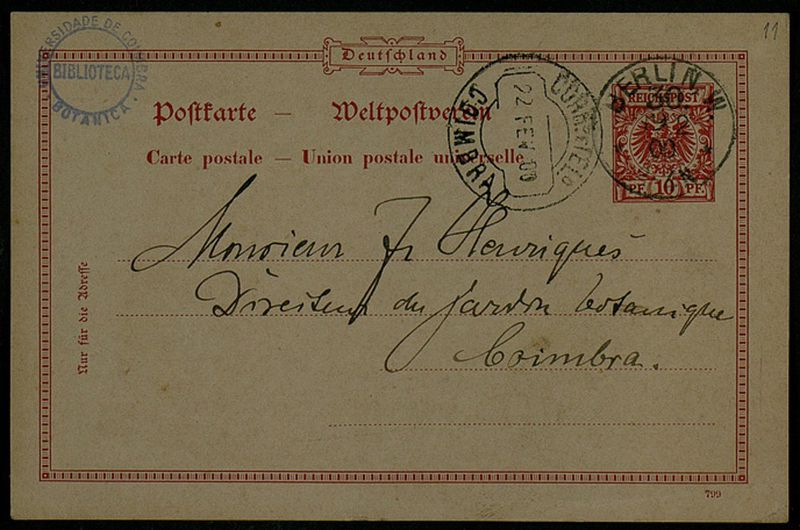 11
UNIVERSIDADE DE COIMBRA
BIBLIOTECA
BOTANICA
Deutschland
Postkarte — Weltpostverein
Carte postale — Union postale universelle
COIMBRA
22 FEV 00
BERLIN W.
REICHSPOST
PF. 10 PF.
Monsieur J. Henriques
Directeur du jardin botanique
Coimbra.
Nur für die Adresse
799